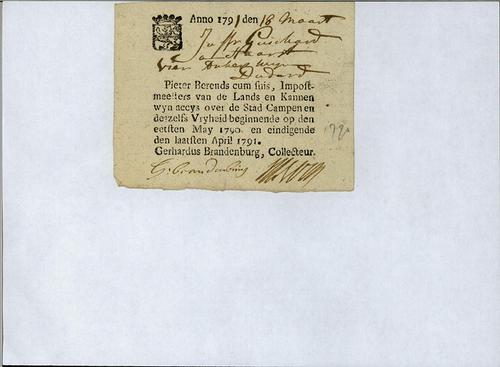 Anno 1791 den 18 Maart
Juffr
vier
Pieter Berends cum suis, Impost-
meesters van de Lands en Kannen
wyn accys over de Stad Campen en
derzelfs Vryheid beginnende op den
eersten May 1790. en eindigende
den laatsten April 1791.
Gerhardus Brandenburg, Collecteur.
G. Brandenburg